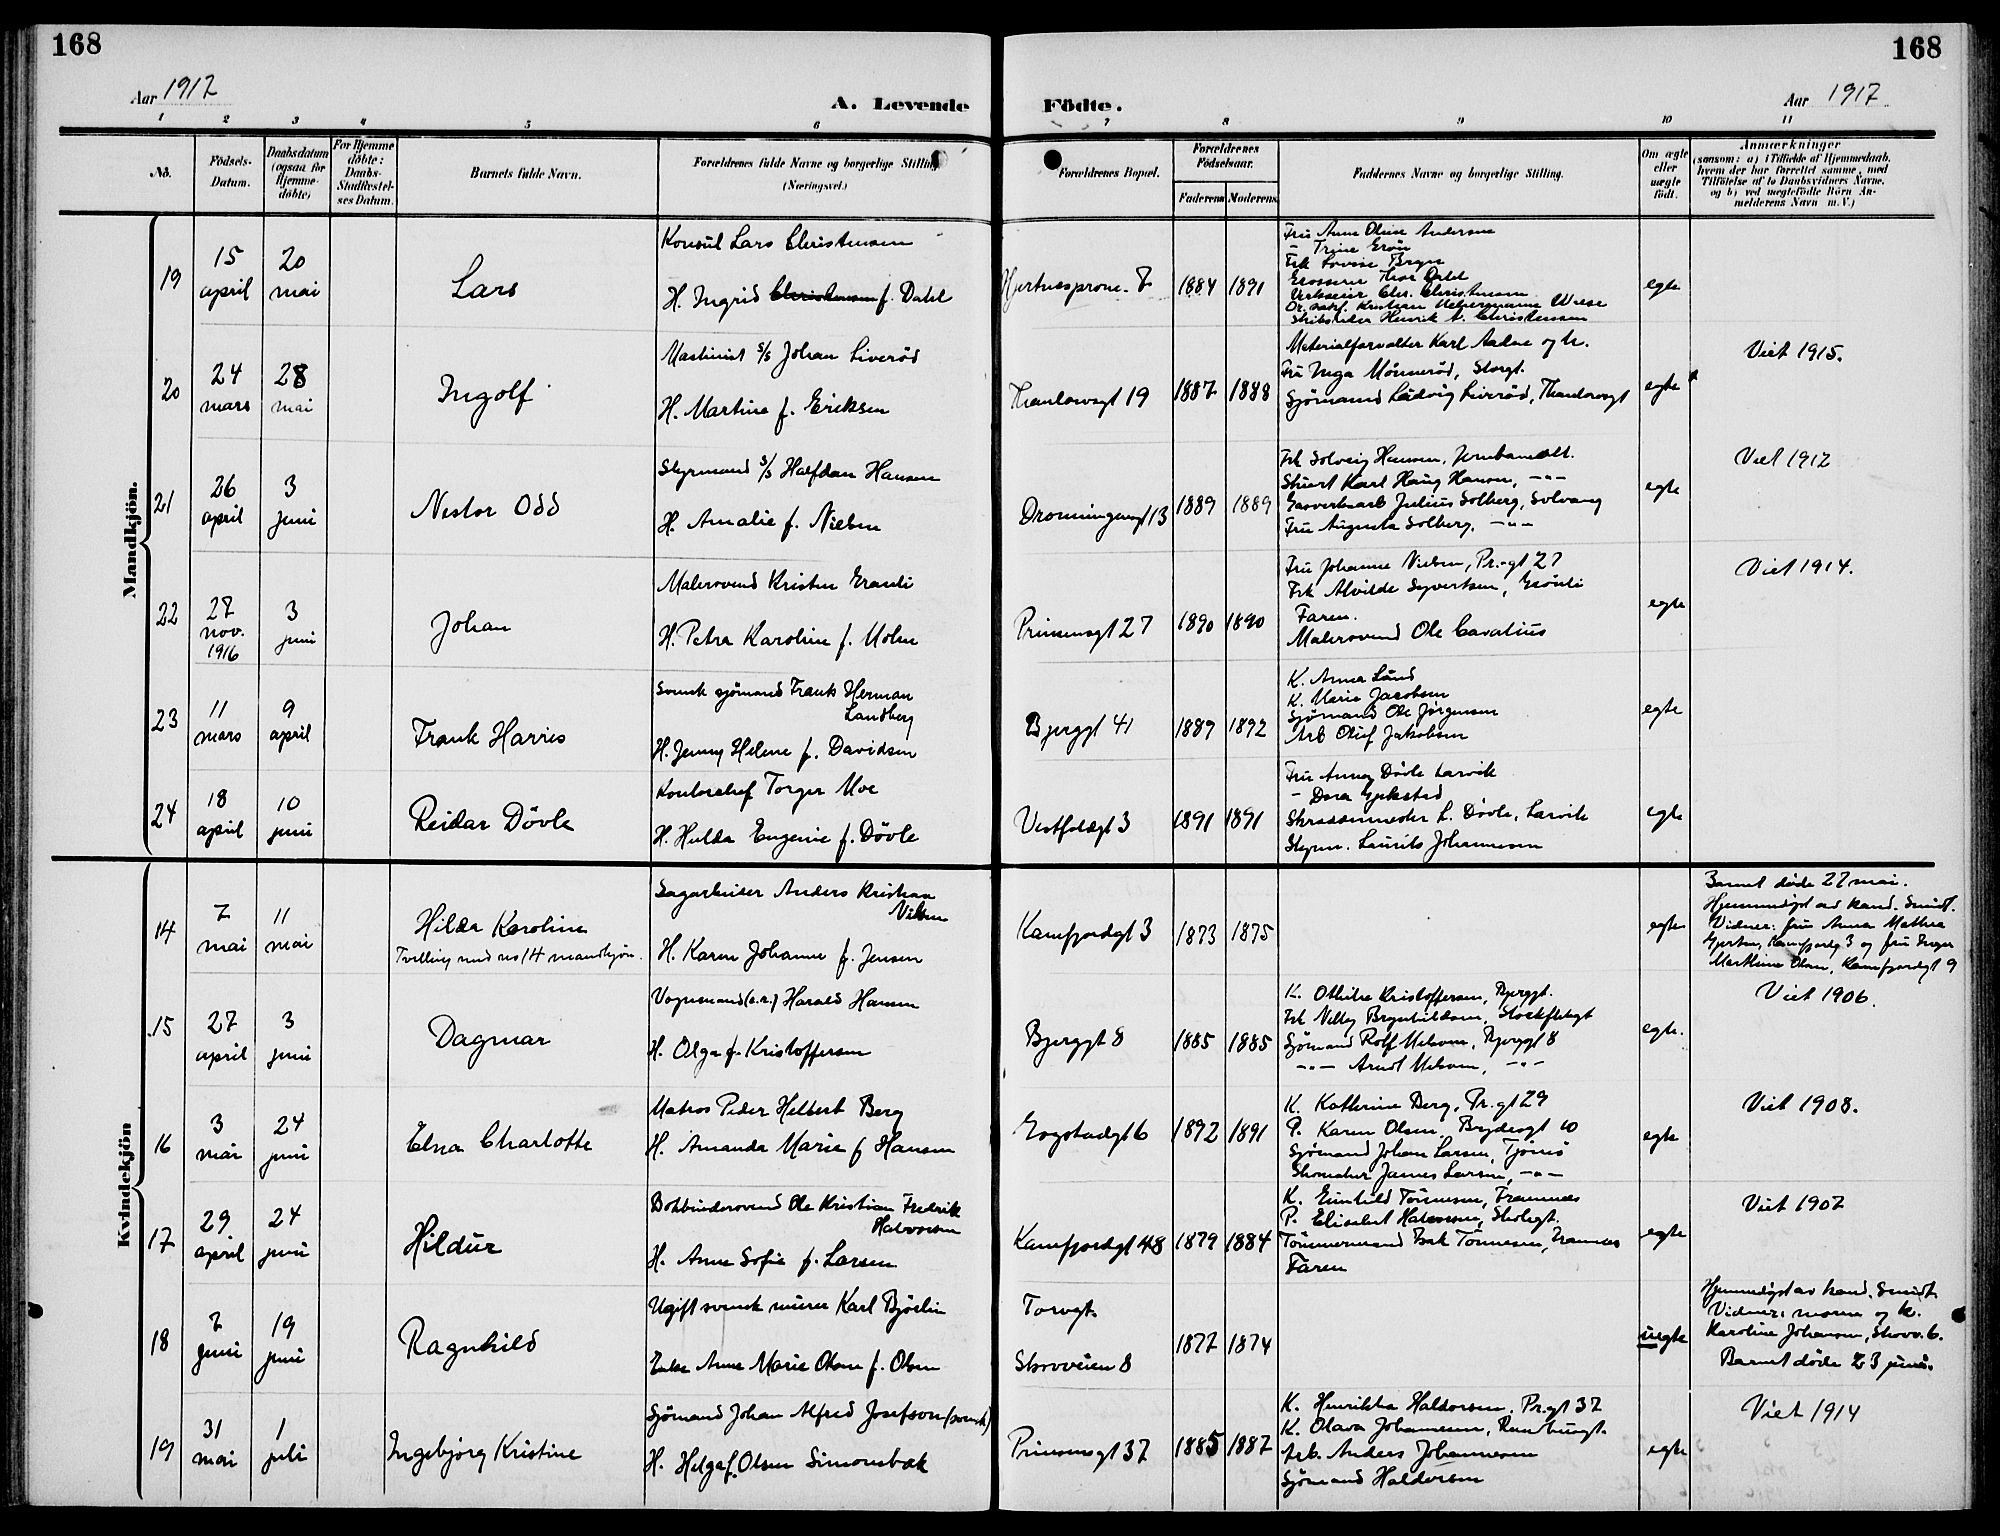 168
168
Aar 1917
A. Levende
Födte.
Aar 1917
1 2 3 4 5 6 7 8 9 10 11
No.
Födsels-Datum.
Daabsdatum (ogsaa for Hjemme-döbte)
For Hjemme döbte: Daabs-Stadfæstel-ses Datum.
Barnets fulde Navn.
Forældrenes fulde Navne og borgerlige Stilling
(Næringsvei.)
Forældrenes Bopæl.
Forældrenes Födselsaar.
Faderens Moderens
Faddernes Navne og borgerlige Stilling.
Om ægte eller uægte födt.
Anmærkninger
(saasom: a) i Tilfælde af Hjemmedaab,
hvem der har forrettet samme, med
Tilföielse af to Daabsvidners Navne,
og b) ved uægtefödte Börn An-
melderens Navn m. V.)
Mandkjön.
19
15 april
20 mai
Lars
Konsul Lars Christensen
H. Ingrid Christensen f. Dahl
Hjertnesprom. 8
1884 1891
Fru Anne Oline Andersen
" Trine Grøn
Frk Lovise Bryn
Grosserer Thor Dahl
Verkseier Chr. Christensen
Skibsreder Henrik N. Christensen
egte
20
24 mars
28 mai
Ingolf
Maskinist s/s Johan Liverød
H. Martine f. Eriksen
Thaulowsgt 19
1887 1888
Materialforvalter Karl Aalve og h.
Fru Inga Mönnerød, Storgt.
Sjömand Ludvig Liverød, Thaulowsgt
egte
Viet 1915.
21
26 april
3 juni
Nestor Odd
Styrmand s/s Halfdan Hansen
H. Amalie f. Nielsen
Dronningensgt 13
1889 1889
Frk Solveig Hansen, Jernbanealt.
Stuert Karl Haug Hansen, -"-
Gasverksarb Julius Solberg, Solvang
Fru Augusta Solberg, -"-
egte
Viet 1912
22
27 nov. 1916
3 juni
Johan
Malersvend Kristen Granli
H. Petra Karoline f. Holm
Prinsensgt 27
1890 1890
Fru Johanne Nielsen, Pr.-gt 27
Frk Alvilde Syvertsen, Grönli
Faren.
Malersvend Ole Cavalius
egte
Viet 1914.
23
11 mars
9 april
Frank Harries
Svensk sjömand Frank Herman
Landberg
H. Jenny Helene f. Davidsen
Bjerggt 41
1889 1892
K. Anna Lund
K. Marie Jacobsen
Sjömand Ole Jörgensen
Arb Oluf Jakobsen
egte
24
18 april
10 juni
Reidar Dövle
Kontorchef Torger Moe
H. Hulda Eugenie f. Dövle
Vestfoldgt 3
1891 1891
Fru Anny Dövle Larvik
" Dora Gjekstad
Skræddermester L. Dövle, Larvik
Styrm. Laurits Johannesen
egte
Kvindekjön
14
7 mai
11 mai
Hilda Karoline
Tvilling med no 14 mandkjøn.
Sagarbeider Anders Kristian
Nilsen
H. Karen Johanne f. Jensen
Kamfjordgt 3
1873 1875
egte
Barnet døde 27 mai.
Hjemmedøpt av kand. Smidt.
Vidner: fru Anna Mathea
Gjertsen, Kamfjordg 3 og fru Inger
Marthine Olsen, Kamfjordgt 9
15
27 april
3 juni
Dagmar
Vognmand (e.r.) Harald Hansen
H. Olga f. Kristoffersen
Bjerggt 8
1885 1885
K. Othilie Kristoffersen, Bjerggt.
Frk Nelly Brynhildsen, Stockflethgt
Sjömand Rolf Melsom, Bjerggt 8
-"- Arndt Melsom, -"-
egte.
Viet 1906.
16
3 mai
24 juni
Elna Charlotte
Matros Peder Helbert Berg
H. Amanda Marie f Hansen
Gogstadgt 6
1892 1891
K. Kathrine Berg, Pr.gt 29
P. Karen Olsen, Brydesgt 10
Sjömand Johan Larsen, Tjömö
Skomaker James Larsen, -"-
egte
Viet 1908.
17
29 april
24 juni
Hildur
Bokbindersvend Ole Kristian Fredrik
Halvorsen
H. Anna Sofie f. Larsen
Kamfjordgt 48
1879 1884
K. Gunhild Tönnesen, Framnes
P. Elisabet Halvorsen, Skolegt.
Tömmermand Tönnesen, Framnes
Faren
egte
Viet 1907
18
7 juni
19 juni
Ragnhild
Ugift svensk murer Karl Björlin
Enke Anne Marie Olsen f. Olsen
Torvgt.
Skovveien 8
1877 1874
uegte
Hjemmedøpt av kand. Smidt
Vidner: moren og k.
Karoline Johansen, Skovv. 6.
Barnet døde 23 juni.
19
31 mai
1 juli
Ingebjørg Kristine
Sjömand Johan Alfred Josefson (svensk)
H. Helga f. Olsen Simonsbæk
Prinsensgt 37
1885 1887
K. Henrikka Haldorsen, Pr.gt 37
K. Olava Johannesen,
Arb. Anders Johannesen
Sjömand Haldorsen
egte
Viet 1914